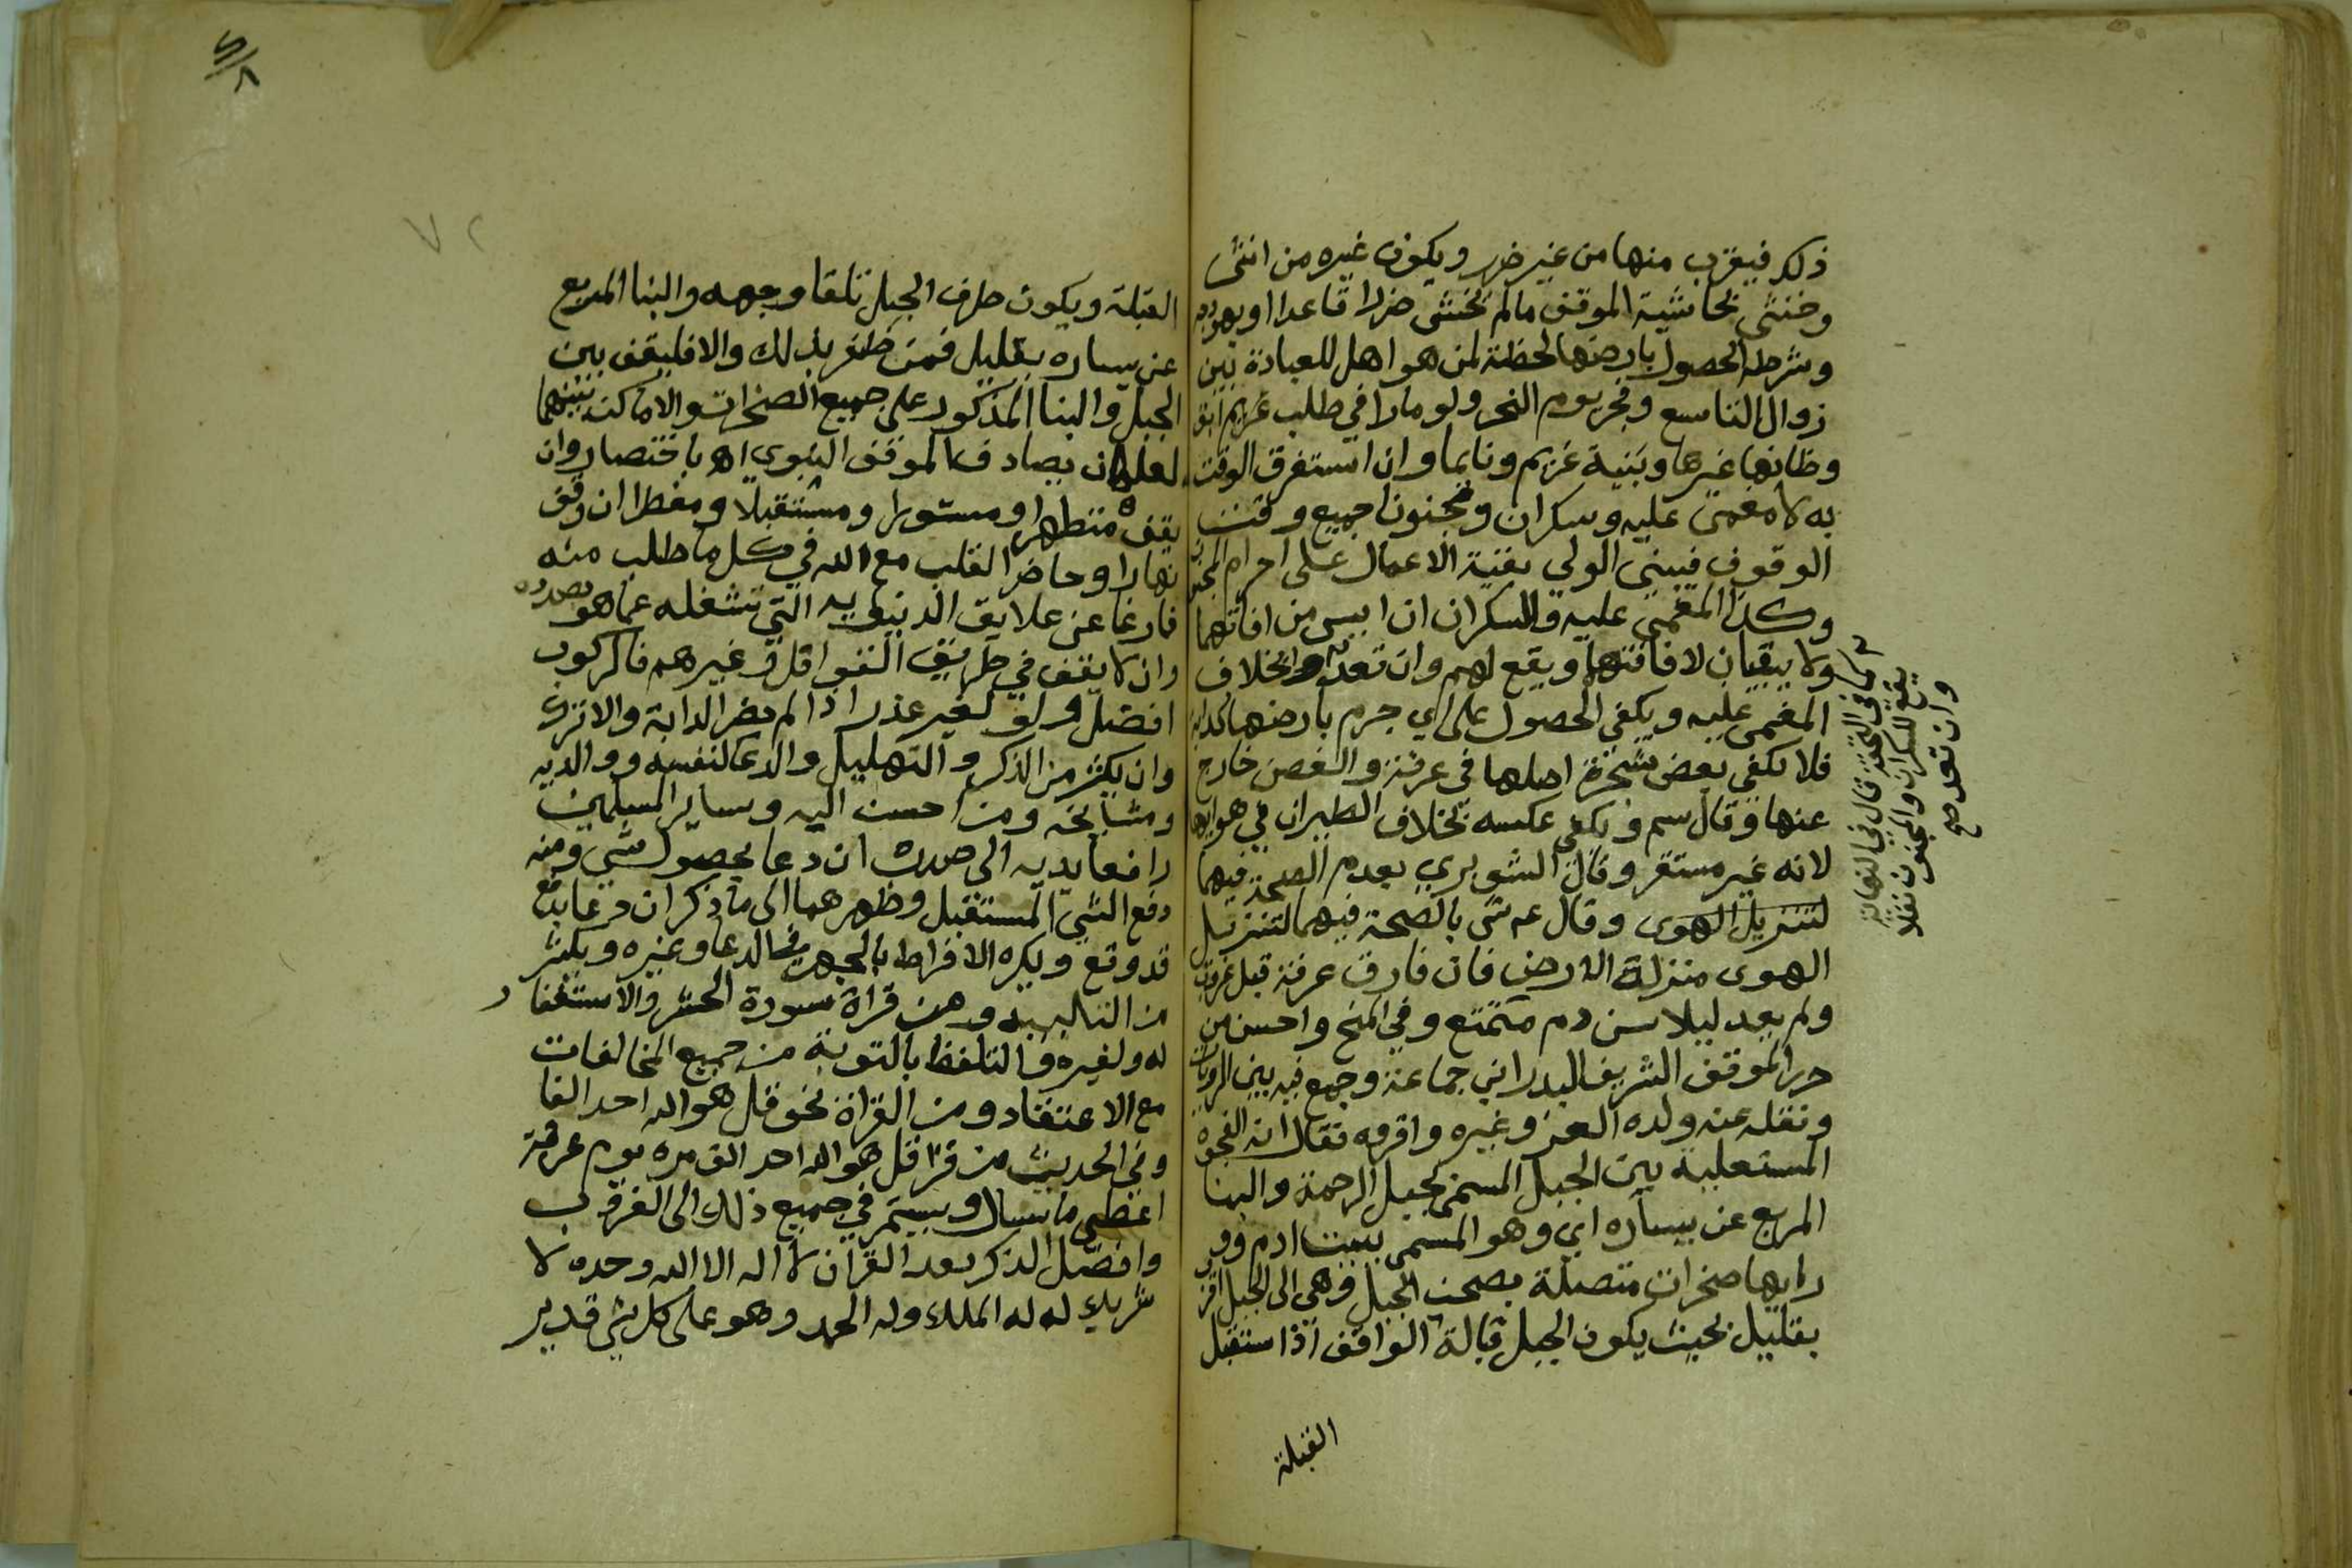 ذلك فيقرب منها من غير ضرر ويكون غيره من انثى
وخنثى بحاشية الموقف مالم يخش ضررا قاعدا او بهودجه
وشرطه الحصول بارضها لحظة لمن هو اهل للعبادة بين
زوال التاسع وفجر يوم النحر ولو مارا في طلب غريم ابق
وظانها غيرها وبنية غريم ونايما وان استغرق الوقت
به لا مغمى عليه وسكران ومجنون جميع وقت
الوقوف فيبني الولي بقية الاعمال على احرام المجنون
وكذا المغمى عليه والسكران ان ايس من افاقتهما
ولا يبقيان لافاقتهما ويقع لهم وان تعدوا بخلاف
المغمى عليه ويكفي الحصول على اي جرم بارضها كدابة
فلا يكفي بعض شجرة اصلها في عرفة والغصن خارج
عنها وقال سم ويكفي عكسه بخلاف الطيران في هوايها
لانه غير مستقر وقال الشوبري بعدم الصحة فيهما
لتنزيل الهوى وقال ع ش بالصحة فيهما لتنزيل
الهوى منزلة الارض فان فارق عرفة قبل غروب
ولم يعد ليلا سن دم متمتع وفي المنح واحسن من
حرر الموقف الشريف البدر ابن جماعة وجمع فيه بين الروايات
ونقله عنه ولده العز وغيره واقروه فقال انه الفجوة
المستعلية بين الجبل المسمى بجبل الرحمة والبنا
المربع عن يساره اي وهو المسمى ببيت ادم وور
رايها صخرات متصلة بصخرات الجبل وهي الى الجبل اقرب
بقليل بحيث يكون الجبل قبالة الواقف اذا استقبل
القبلة
في التحفة قال في النهاية
يقع للسكران والمجنون نفلا
وان تعد صح
القبلة ويكون طرف الجبل تلقا وجهه والبنا المربع
عن يساره بقليل فمن ظفر بذلك والا فليقف بين
الجبل والبنا المذكور على جميع الصخرات والاماكن بينهما
لعله ان يصادف الموقف النبوي اه باختصار وان
يقف متطهرا ومستورا ومستقبلا ومفطرا ان وقف
نهارا وحاضر القلب مع الله في كل ما طلب منه
فارغا عن علايق الدنيويه التي تشغله عما هو بصدده
وان لا يقف في طريق القوافل وغيرهم فالركوب
افضل ولو لغير عذر اذا لم يضر الدابة والا نزل
وان يكثر من الذكر والتهليل والدعا لنفسه ووالديه
ومشايخه ومن احسن اليه وساير المسلمين
رافعا يديه الى صدره ان دعا بحصول شي ومنه
دفع الشي المستقبل وظهرهما الى ما ذكر ان دعا برفع
قد وقع ويكره الافراط بالجهر في الدعا وغيره ويكثر
من التلبيه ومن قراة سورة الحشر والاستغفار
له ولغيره والتلفظ بالتوبة من جميع المخالفات
مع الاعتقاد ومن القراة نحو قل هو الله احد الفا
وفي الحديث من قرا قل هو الله احد الف مره يوم عرفة
اعطي ما سال ويستمر في جميع ذلك الى الغروب
وافضل الذكر بعد القران لا اله الا الله وحده لا
شريك له له الملك وله الحمد وهو على كل شي قدير